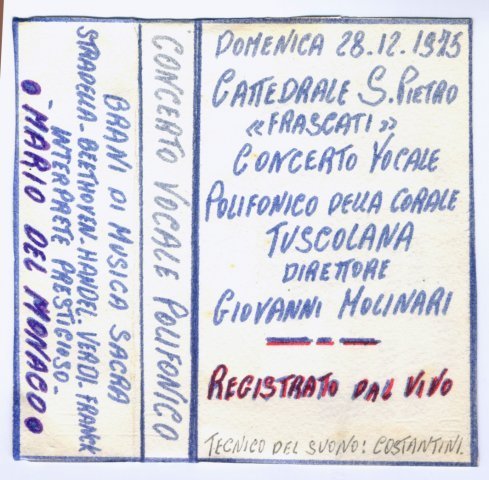 DOMENICA 28.12.1975
CATTEDRALE S. PIETRO
«FRASCATI»
CONCERTO VOCALE
POLIFONICO DELLA CORALE
TUSCOLANA
DIRETTORE
GIOVANNI MOLINARI
REGISTRATO DAL VIVO
TECNICO DEL SUONO: COSTANTINI.
CONCERTO VOCALE POLIFONICO
BRANI DI MUSICA SACRA
STRADELLA-BEETHOVEN-HANDEL-VERDI-FRANCK
INTERPRETE PRESTIGIOSO-
O MARIO DEL MONACO O